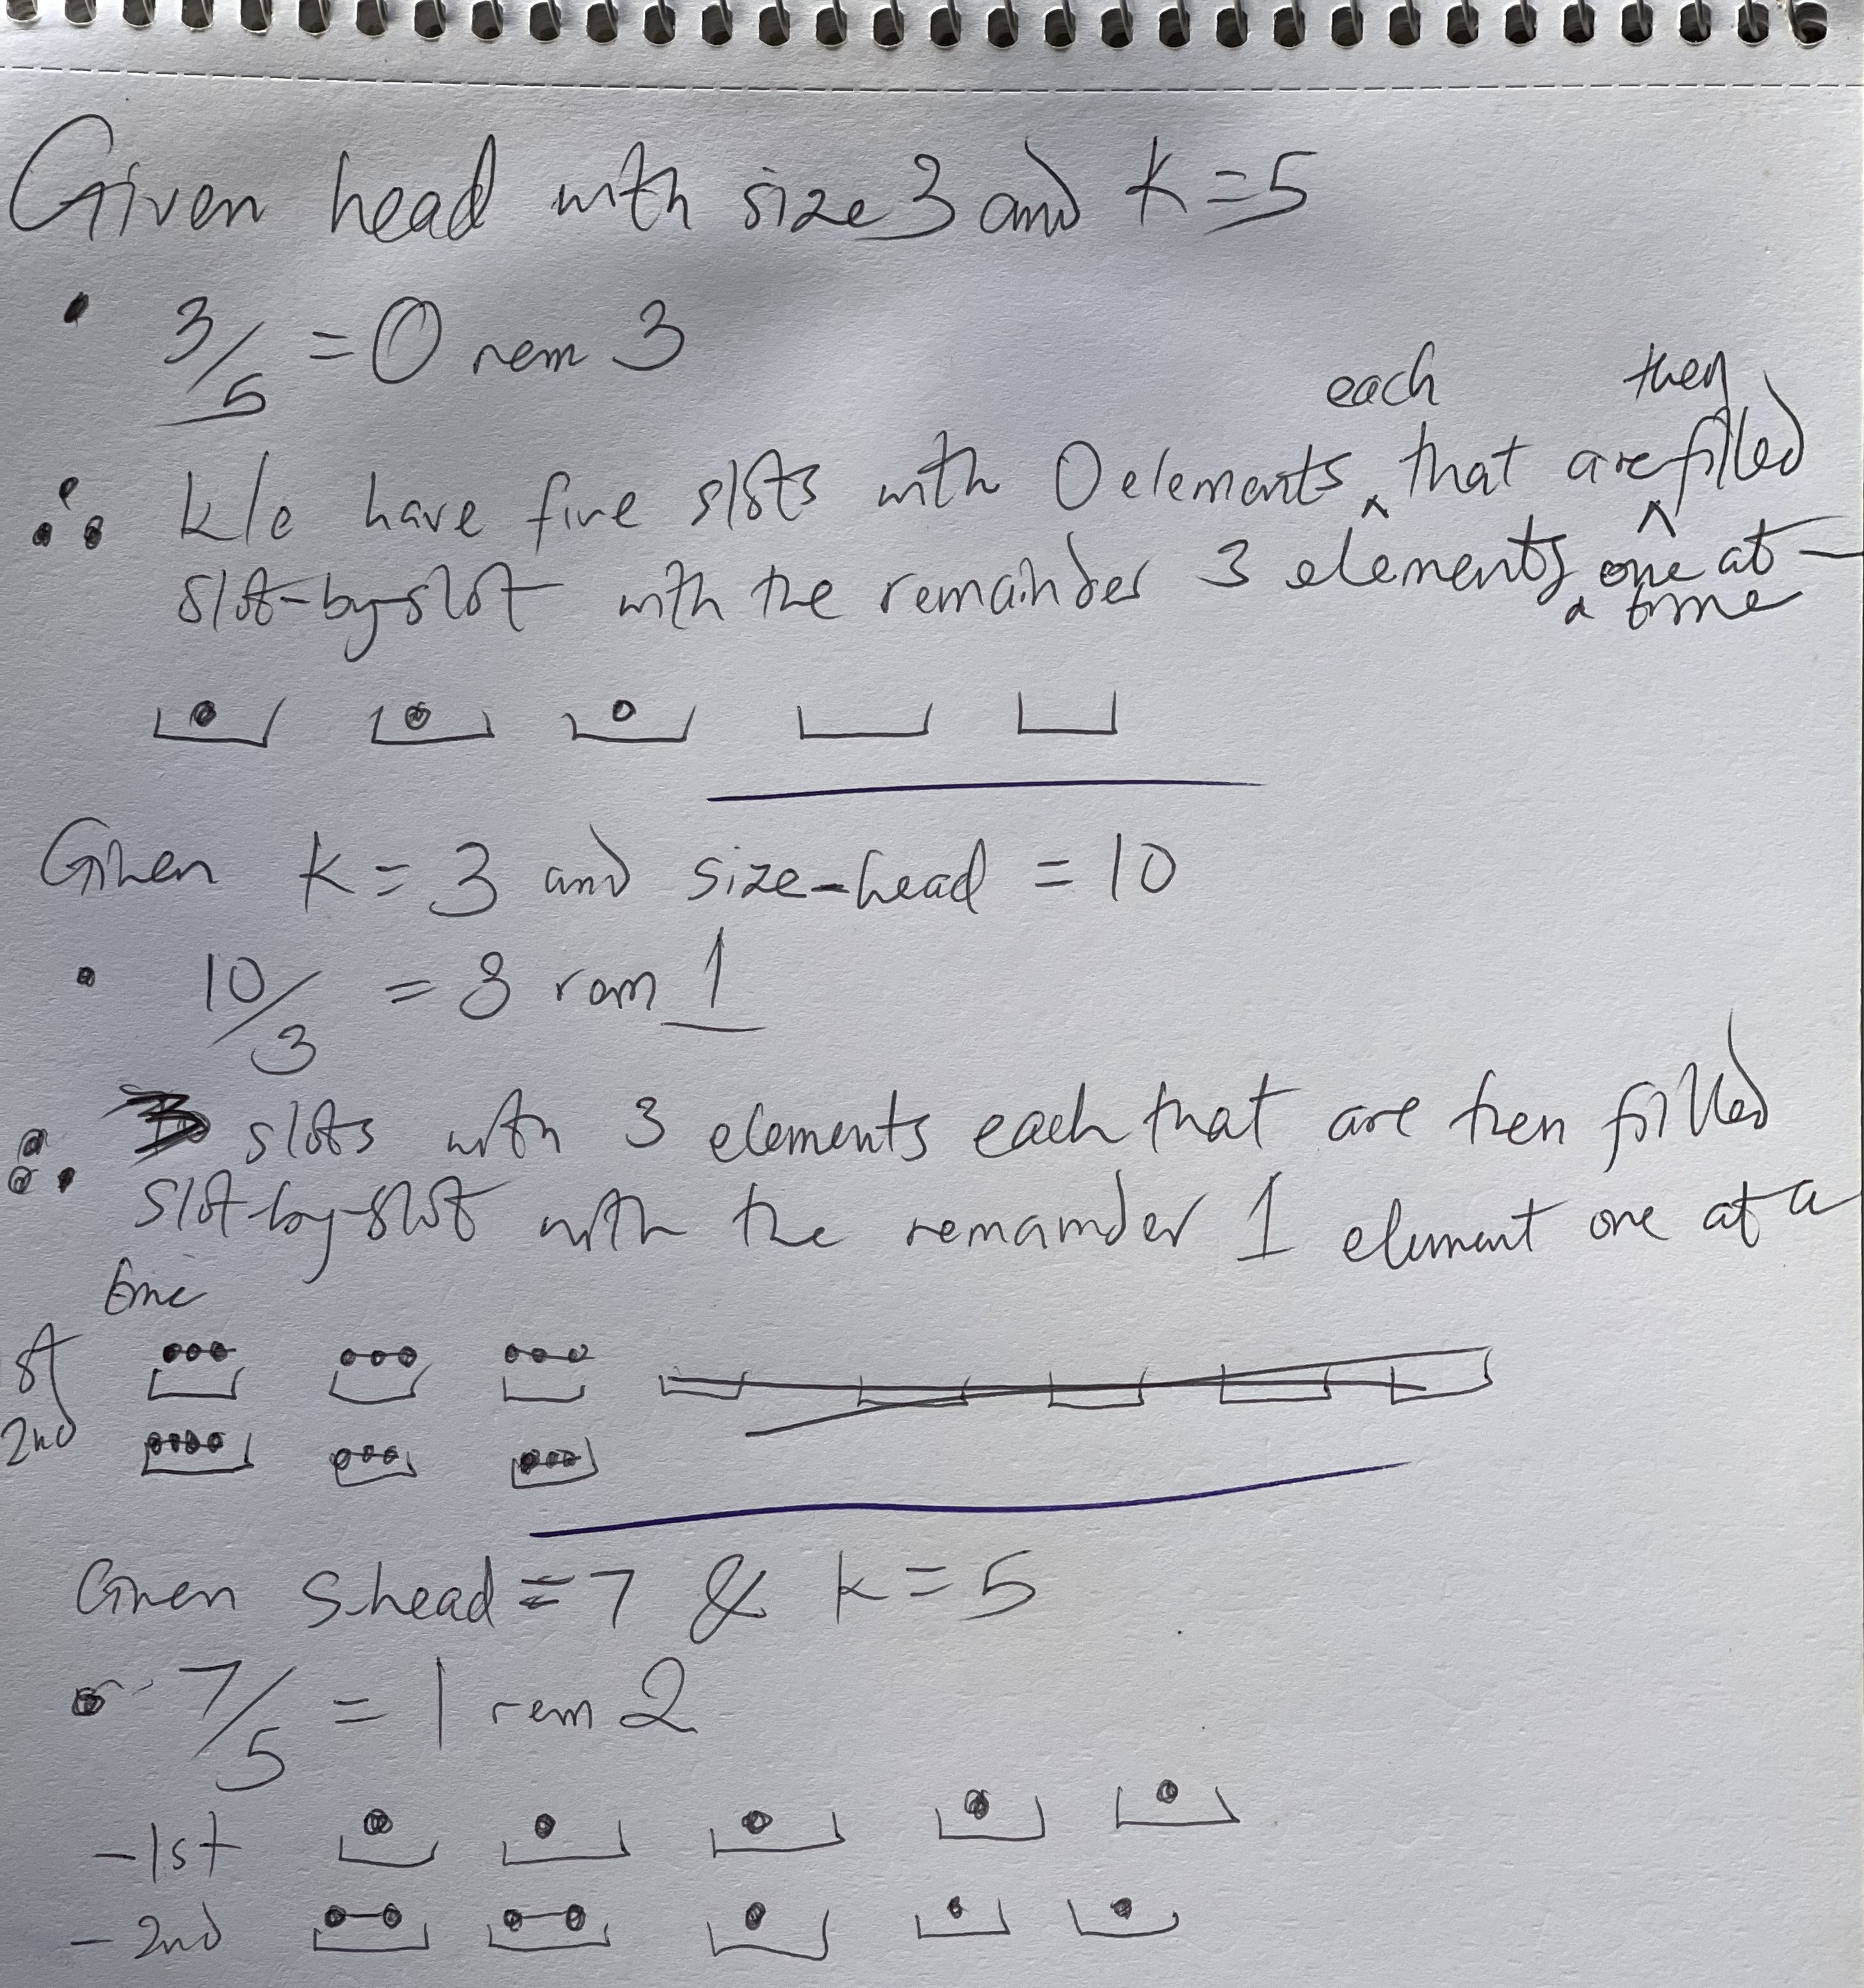 each then
Given head with size 3 and k = 5
• 3/5 = 0 rem 3
∴ We have five slots with 0 elements ^ that are ^ filled
slot-by-slot with the remainder 3 elements, one at
a time
Given k = 3 and size-head = 10
• 10/3 = 3 rem 1
∴ slots with 3 elements each that are then filled
slot-by-slot with the remainder 1 element one at a
time
st
2nd
Given s-head = 7 & k = 5
• 7/5 = 1 rem 2
- 1st
- 2nd